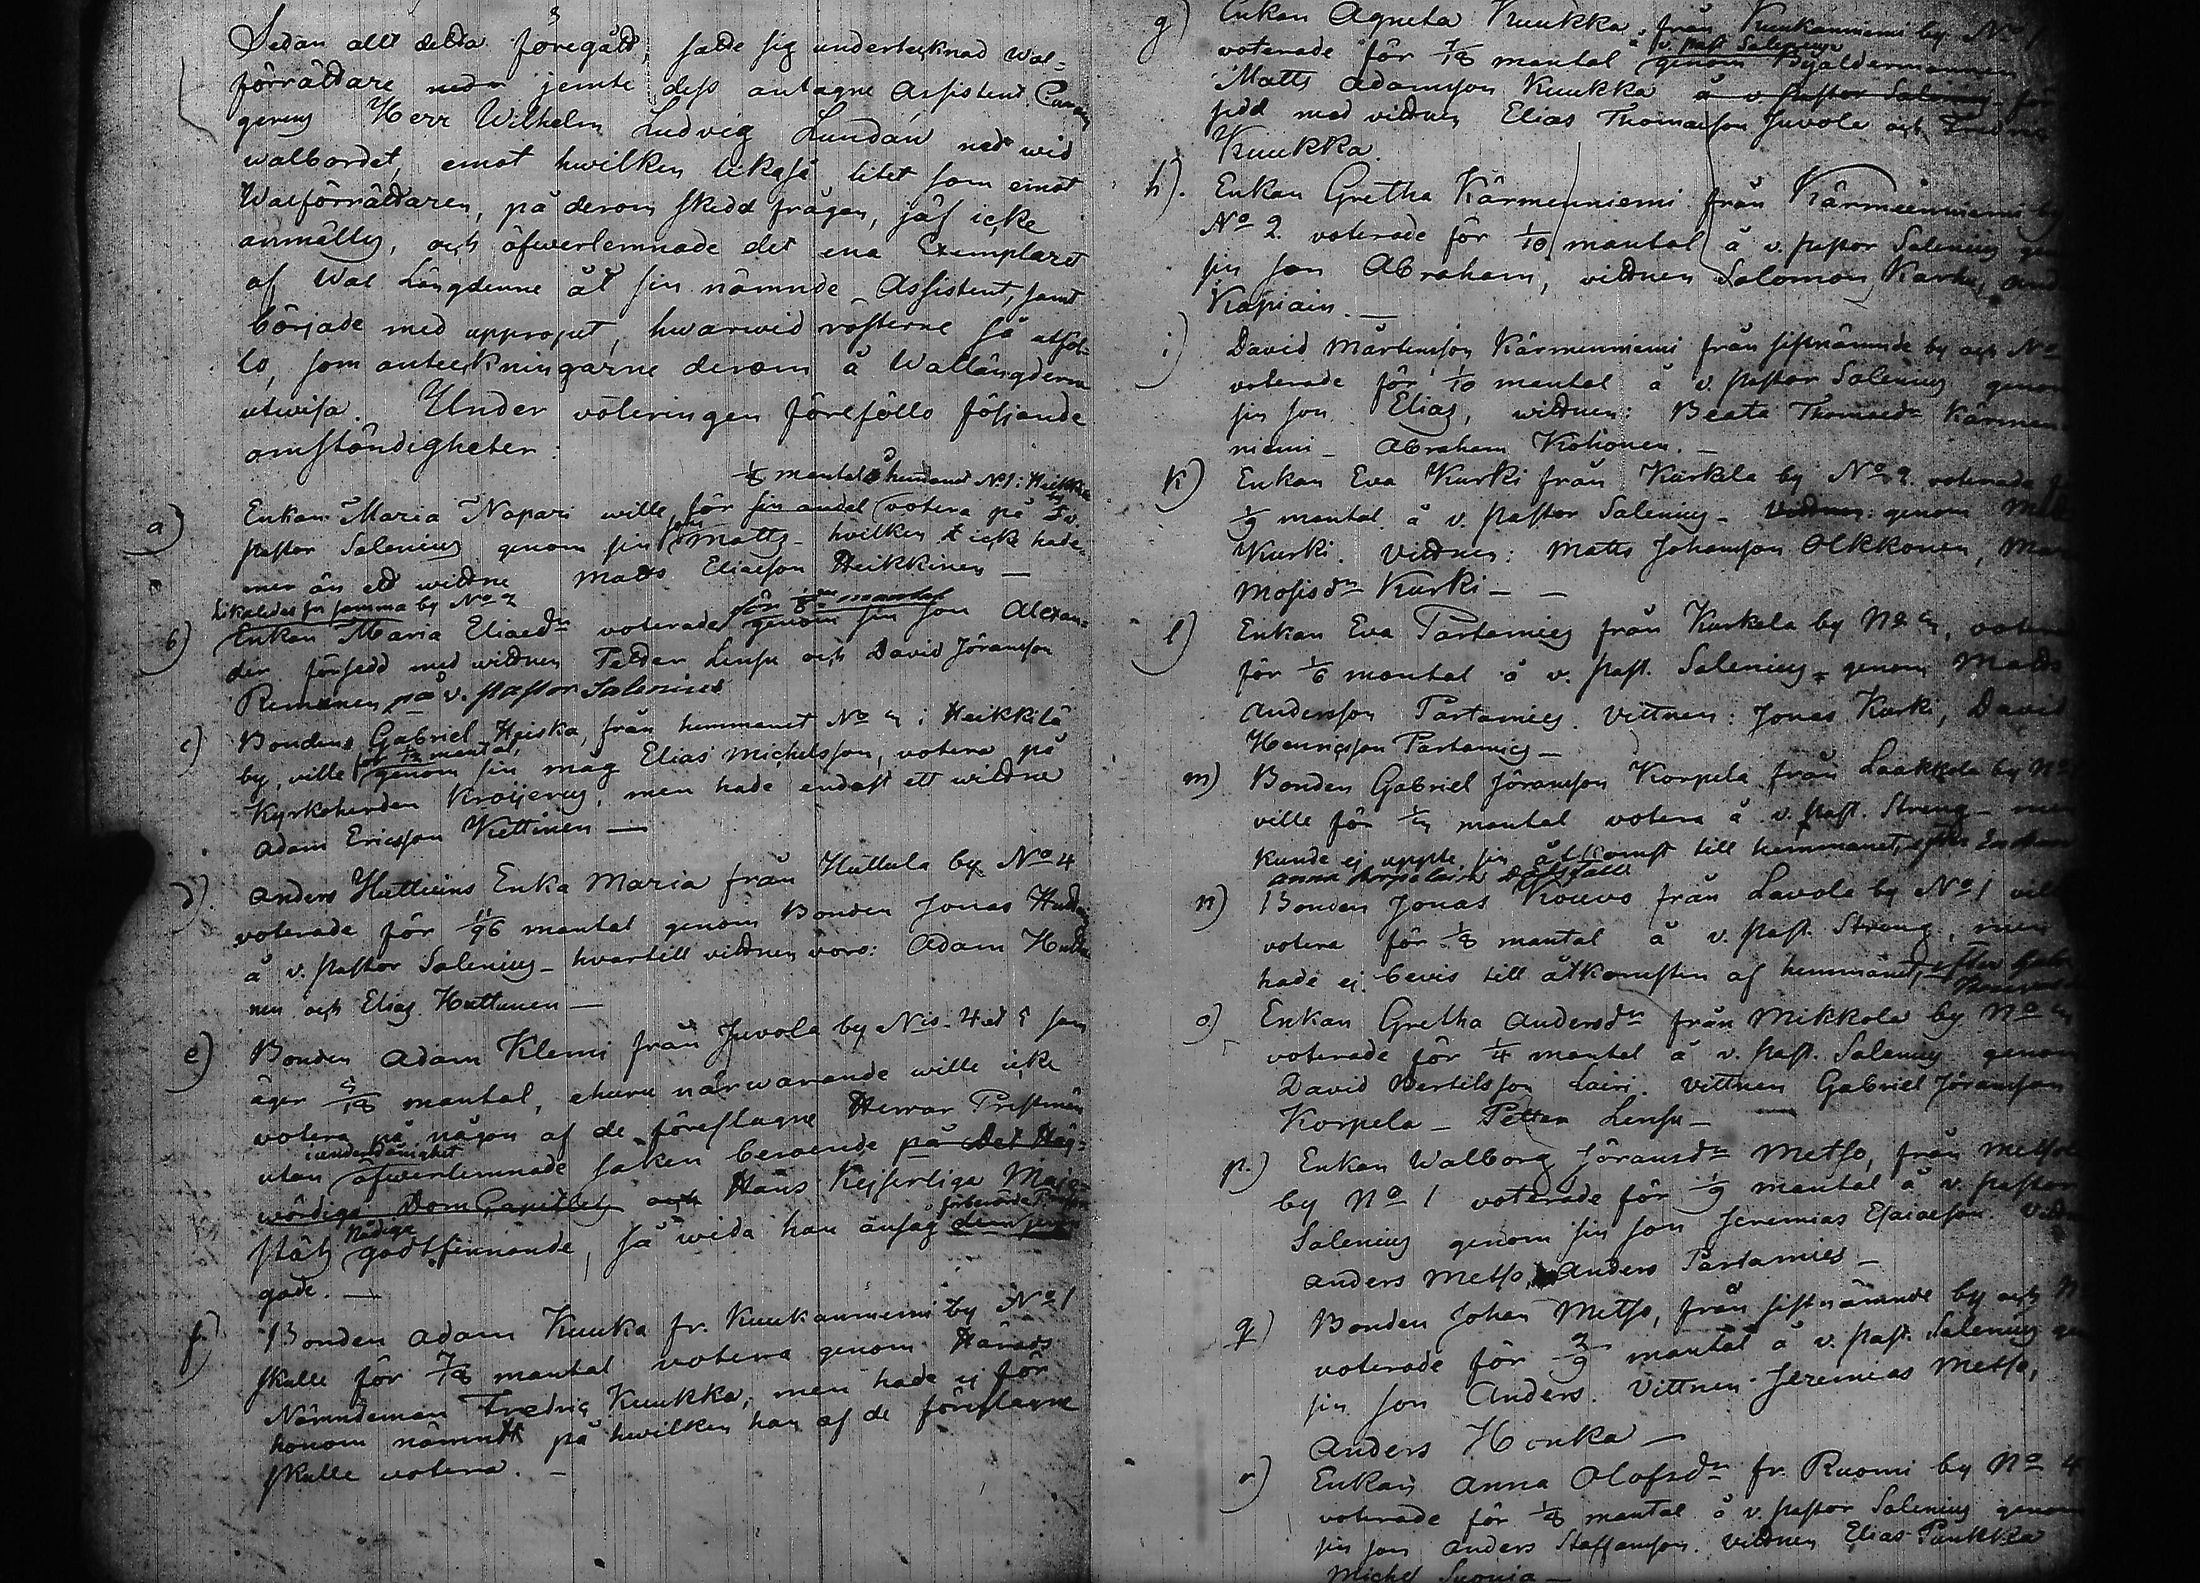 Sedan allt detta föregått, satte sig undertecknad Wal-
förrättare nedr jemte dess antagne Assistent
Herr Wilhelm Ludvig Lundán ned wid
walbordet, emot hwilken likaså litet som emot
Walförrättaren, på derom skedd frågan, jäf icke
anmältes, och öfwerlemnade det ena Exemplaret
af Wal Längderne åt sin nämnde Assistent, samt
började med uppropet, hwarwid rösterne så utföl-
lo, som anteckningarne derom å Wallängderne
utwisa. Under voteringen föreföllo följande
omständigheter:
1/8 mantal å hemmanet N 1 i Heikkilä by
a) Enkan Maria Napari wille för sin andel votera på v.
pastor Salenius genom sin son Matts hvilken icke hade
mer än ett wittne Matts Eliasson Heikkinen —
Likaledes fr samma by No 2
b) Enkan Maria Eliaedr voterade för 1/8 mantal genom sin son Alexan-
der försedd med wittnen Petter Lensu och David Jöransson
Remanen på v. pastor Salenius
c) Bondens Gabriel Heiska, från hemmanet No 4 i Heikkilä
by, ville för 1/12 mantal, genom sin måg Elias Michelsson, votera på
Kyrkoherden Kroijerus, men hade endast ett wittne
Adam Ericsson Kettinen —
d). Anders Huttuins Enka Maria från Huttula by No 4
voterade för 11/96 mantal genom Bonden Jonas
å v. Pastor Salenius — hvartill vittnen voro: Adam Huttu
nen och Elias Huttunen —
e) Bonden Adam Klemi från Juvola by Nis. 4 et 5 som
äger 5/18 mantal, ehuru närwarande wille icke
votera på någon af de föreslagne Herrar Prestmän
i underdånighet
utan öfwerlemnade saken beroende på Det Hög-
wördige Dom Capitlet och Hans Kejserliga Maje-
Nådige
stäts godtfinnande, så wida han ansåg
gode. —
f.) Bonden Adam Kuuka fr. Kuukanniemi by No 1
skulle för 7/18 mantal votera genom Härads
Nämndeman Fredric Kuukka, men hade ej för
honom nämndt på hwilken han af de föreslagne
skulle votera. —
g) Enkan Agneta Kuukka från Kuukanniemi by No 1
v. past Salenius
voterade för 7/18 mantal genom Byåldermannen
Matts Adamsson Kuukka å v. Pastor Salenius för
sedd med vittnen Elias Thomasson Juvola och Fredric
Kuukka.
h). Enkan Gretha Kärmenniemi från Kärmenniemi by
No 2 voterade för 1/10 mantal å v. pastor Salenius gen
sin son Abraham, vittnen Salomon Karhu, And
Kapiain. —
i) David Mårtensson Kärmenniemi från sistnämnde by och No
voterade för 1/10 mantal å v. Pastor Salenius genom
sin son Elias, wittnen: Beata Thomaedr Kärmen
niemi — Abraham Kohonen. —
k) Enkan Eva Kurki från Kurkela by No 2 voterade f
1/9 mantal å v. Pastor Salenius — Vittnen: genom
Kurki. Vittnen: Matts Johansson Olkkonen,
Mosisdr Kurki — —
l) Enkan Eva Partamies från Kurkela by No 4, votera
för 1/6 mantal å v. past. Salenius genom Matts
Andersson Partamies. Vittnen: Jonas Kurki, David
Henricsson Partamies —
m) Bonden Gabriel Jöransson Korpela från Laakkola by No
ville för 1/4 mantal votera å v. past. Streng — men
kunde ej uppte sin åtkomst till hemmanet, efter Enkan
Anna Korpelain dödsfall
n) Bonden Jonas Kouvo från Lavola by No 1 vil
votera för 1/8 mantal å v. past. Streng, men
hade ej bevis till åtkomsten af hemmanet, efter
o.) Enkan Gretha Andersdr från Mikkola by No 4
voterade för 1/4 mantal å v. past. Salenius genom
David Bertilsson Lairi. Vittnen Gabriel Jöransson
Korpela — Petter Lensu —
p.) Enkan Walborg Jöransdr Metso, från Metsola
by No 1 voterade för 1/9 mantal å v. pastor
Salenius genom sin son Jeremias Esaiasson. Vittn
Anders Metso, Anders Partamies —
q) Bonden Johan Metso, från sistnämnde by och N
voterade för 2/9 mantal å v. past. Salenius gen
sin son Anders. Vittnen Jeremias Metso,
Anders Honka —
r) Enkan Anna Olofsdr fr. Ruomi by No 4
voterade för 1/8 mantal å v. pastor Salenius genom
sin son Anders Staffansson. vittnen Elias Punkka
Michel Suonia —